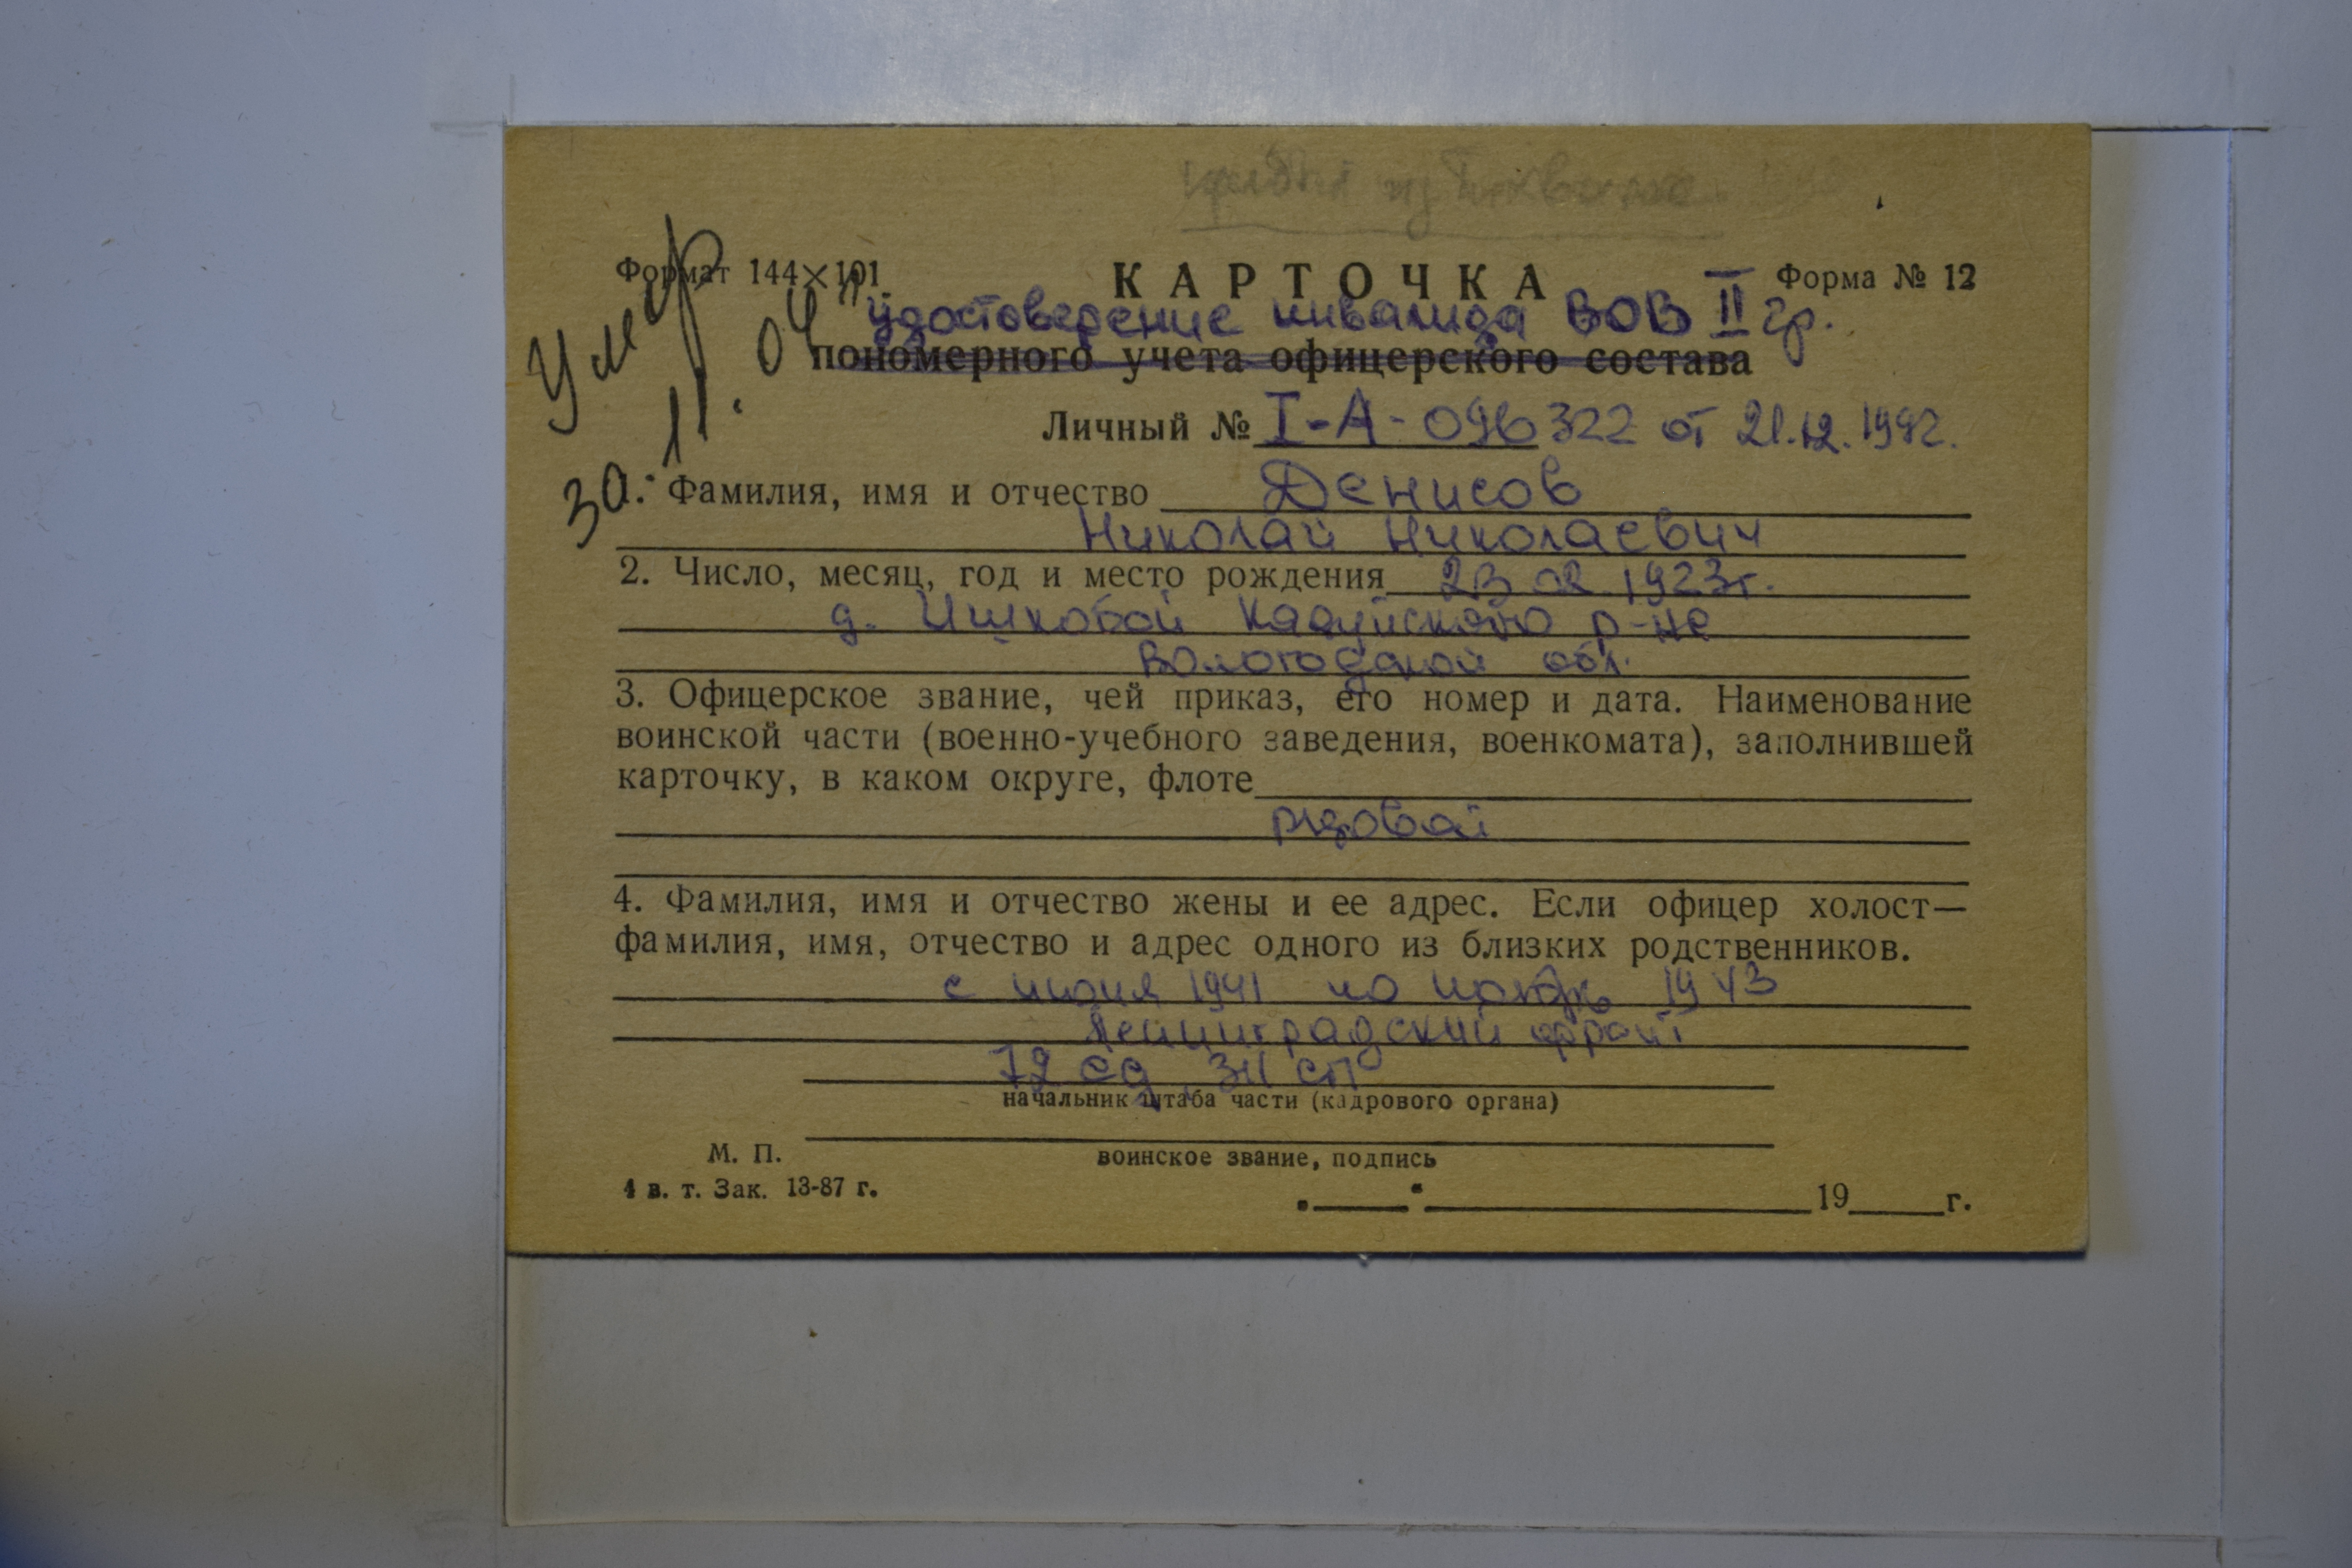 Формат 144×101
КАРТОЧКА
Форма № 12
Умер
30.11.04
удостоверение инвалида ВОВ II гр.
пономерного учета офицерского состава
Личный № I-А-096322 от 21.12.1992.
Фамилия, имя и отчество Денисов
Николай Николаевич
2. Число, месяц, год и место рождения 23 02 1923г.
д. Кадуйского р-на
Вологодской обл.
3. Офицерское звание, чей приказ, его номер и дата. Наименование
воинской части (военно-учебного заведения, военкомата), заполнившей
карточку, в каком округе, флоте
рядовой
4. Фамилия, имя и отчество жены и ее адрес. Если офицер холост—
фамилия, имя, отчество и адрес одного из близких родственников.
с 1941 по ноябрь 1943
Ленинградский фронт
72 сд, СП
начальник штаба части (кадрового органа)
М. П.
воинское звание, подпись
4 в. т. Зак. 13-87 г.
19 г.